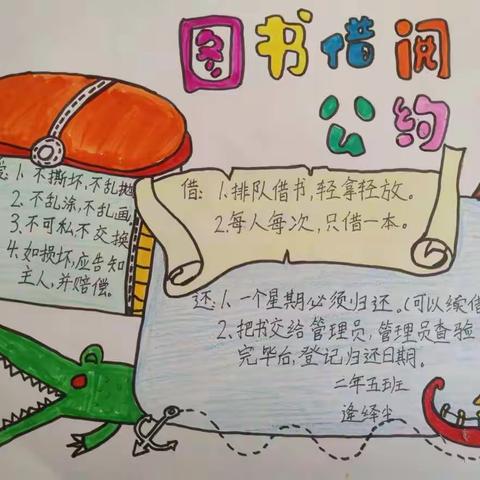 图书借阅
公约
爱:1.不撕坏,不乱抛
2.不乱涂,不乱画
3.不可私下交换
4.如损坏,应告知
主人,并赔偿。
借:1.排队借书,轻拿轻放。
2.每人每次,只借一本。
还:1.一个星期必须归还。(可以续借
2.把书交给管理员,管理员查验
完毕后,登记,归还日期。
二年五班
逄绎尘